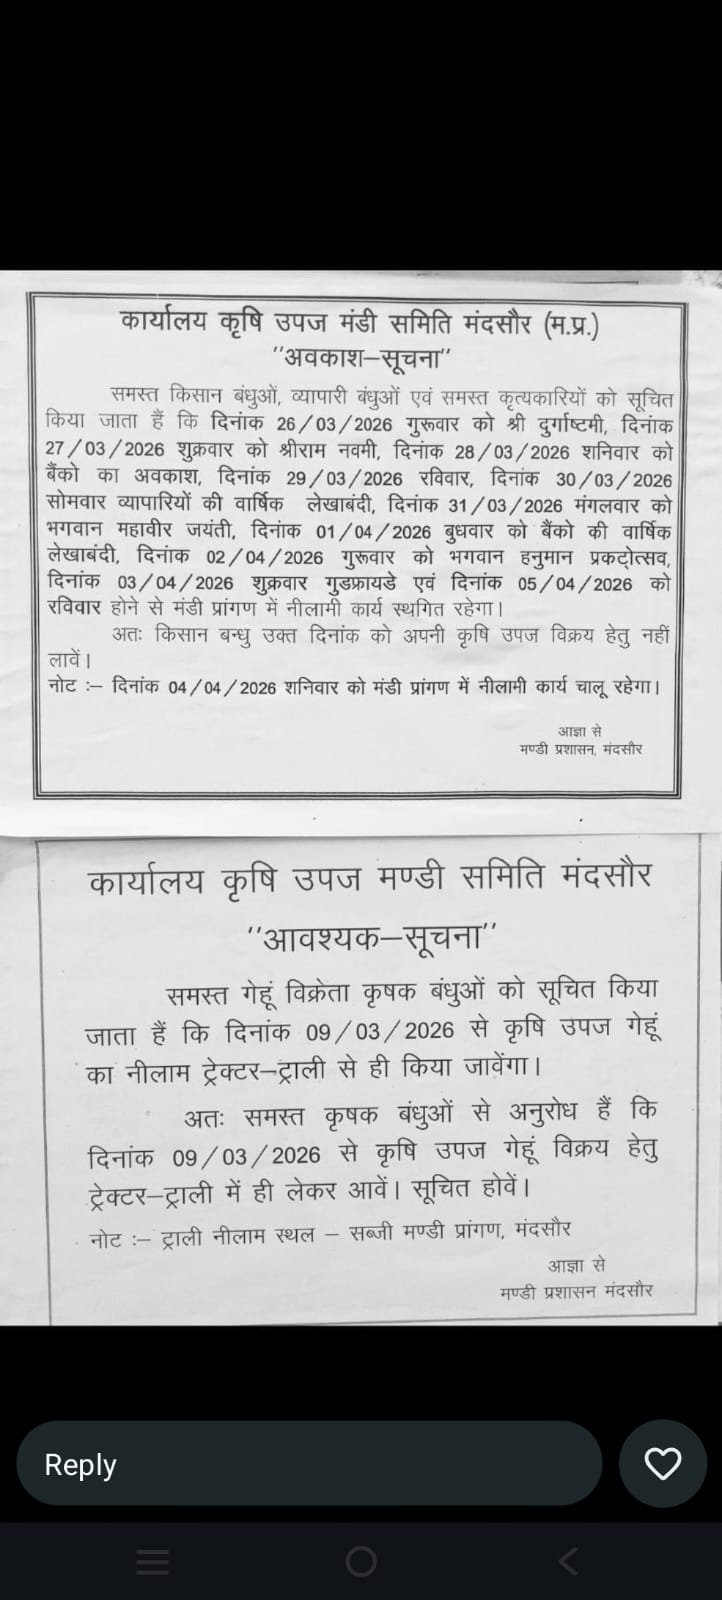 कार्यालय कृषि उपज मंडी समिति मंदसौर (म.प्र.)
"अवकाश–सूचना"
समस्त किसान बंधुओं, व्यापारी बंधुओं एवं समस्त कृत्यकारियों को सूचित
किया जाता हैं कि दिनांक 26/03/2026 गुरूवार को श्री दुर्गाष्टमी, दिनांक
27/03/2026 शुक्रवार को श्रीराम नवमी, दिनांक 28/03/2026 शनिवार को
बैंको का अवकाश, दिनांक 29/03/2026 रविवार, दिनांक 30/03/2026
सोमवार व्यापारियों की वार्षिक लेखाबंदी, दिनांक 31/03/2026 मंगलवार को
भगवान महावीर जयंती, दिनांक 01/04/2026 बुधवार को बैंको की वार्षिक
लेखाबंदी, दिनांक 02/04/2026 गुरूवार को भगवान हनुमान प्रकट्रोत्सव,
दिनांक 03/04/2026 शुक्रवार गुडफ्रायडे एवं दिनांक 05/04/2026 को
रविवार होने से मंडी प्रांगण में नीलामी कार्य स्थगित रहेगा।
अतः किसान बन्धु उक्त दिनांक को अपनी कृषि उपज विक्रय हेतु नहीं
लावें।
नोट :– दिनांक 04/04/2026 शनिवार को मंडी प्रांगण में नीलामी कार्य चालू रहेगा।
आज्ञा से
मण्डी प्रशासन, मंदसौर
कार्यालय कृषि उपज मण्डी समिति मंदसौर
''आवश्यक–सूचना''
समस्त गेहूं विक्रेता कृषक बंधुओं को सूचित किया
जाता हैं कि दिनांक 09/03/2026 से कृषि उपज गेहूं
का नीलाम ट्रेक्टर–ट्राली से ही किया जावेंगा।
अतः समस्त कृषक बंधुओं से अनुरोध हैं कि
दिनांक 09/03/2026 से कृषि उपज गेहूं विक्रय हेतु
ट्रेक्टर–ट्राली में ही लेकर आवें। सूचित होवें।
नोट :– ट्राली नीलाम स्थल – सब्जी मण्डी प्रांगण, मंदसौर
आज्ञा से
मण्डी प्रशासन मंदसौर
Reply